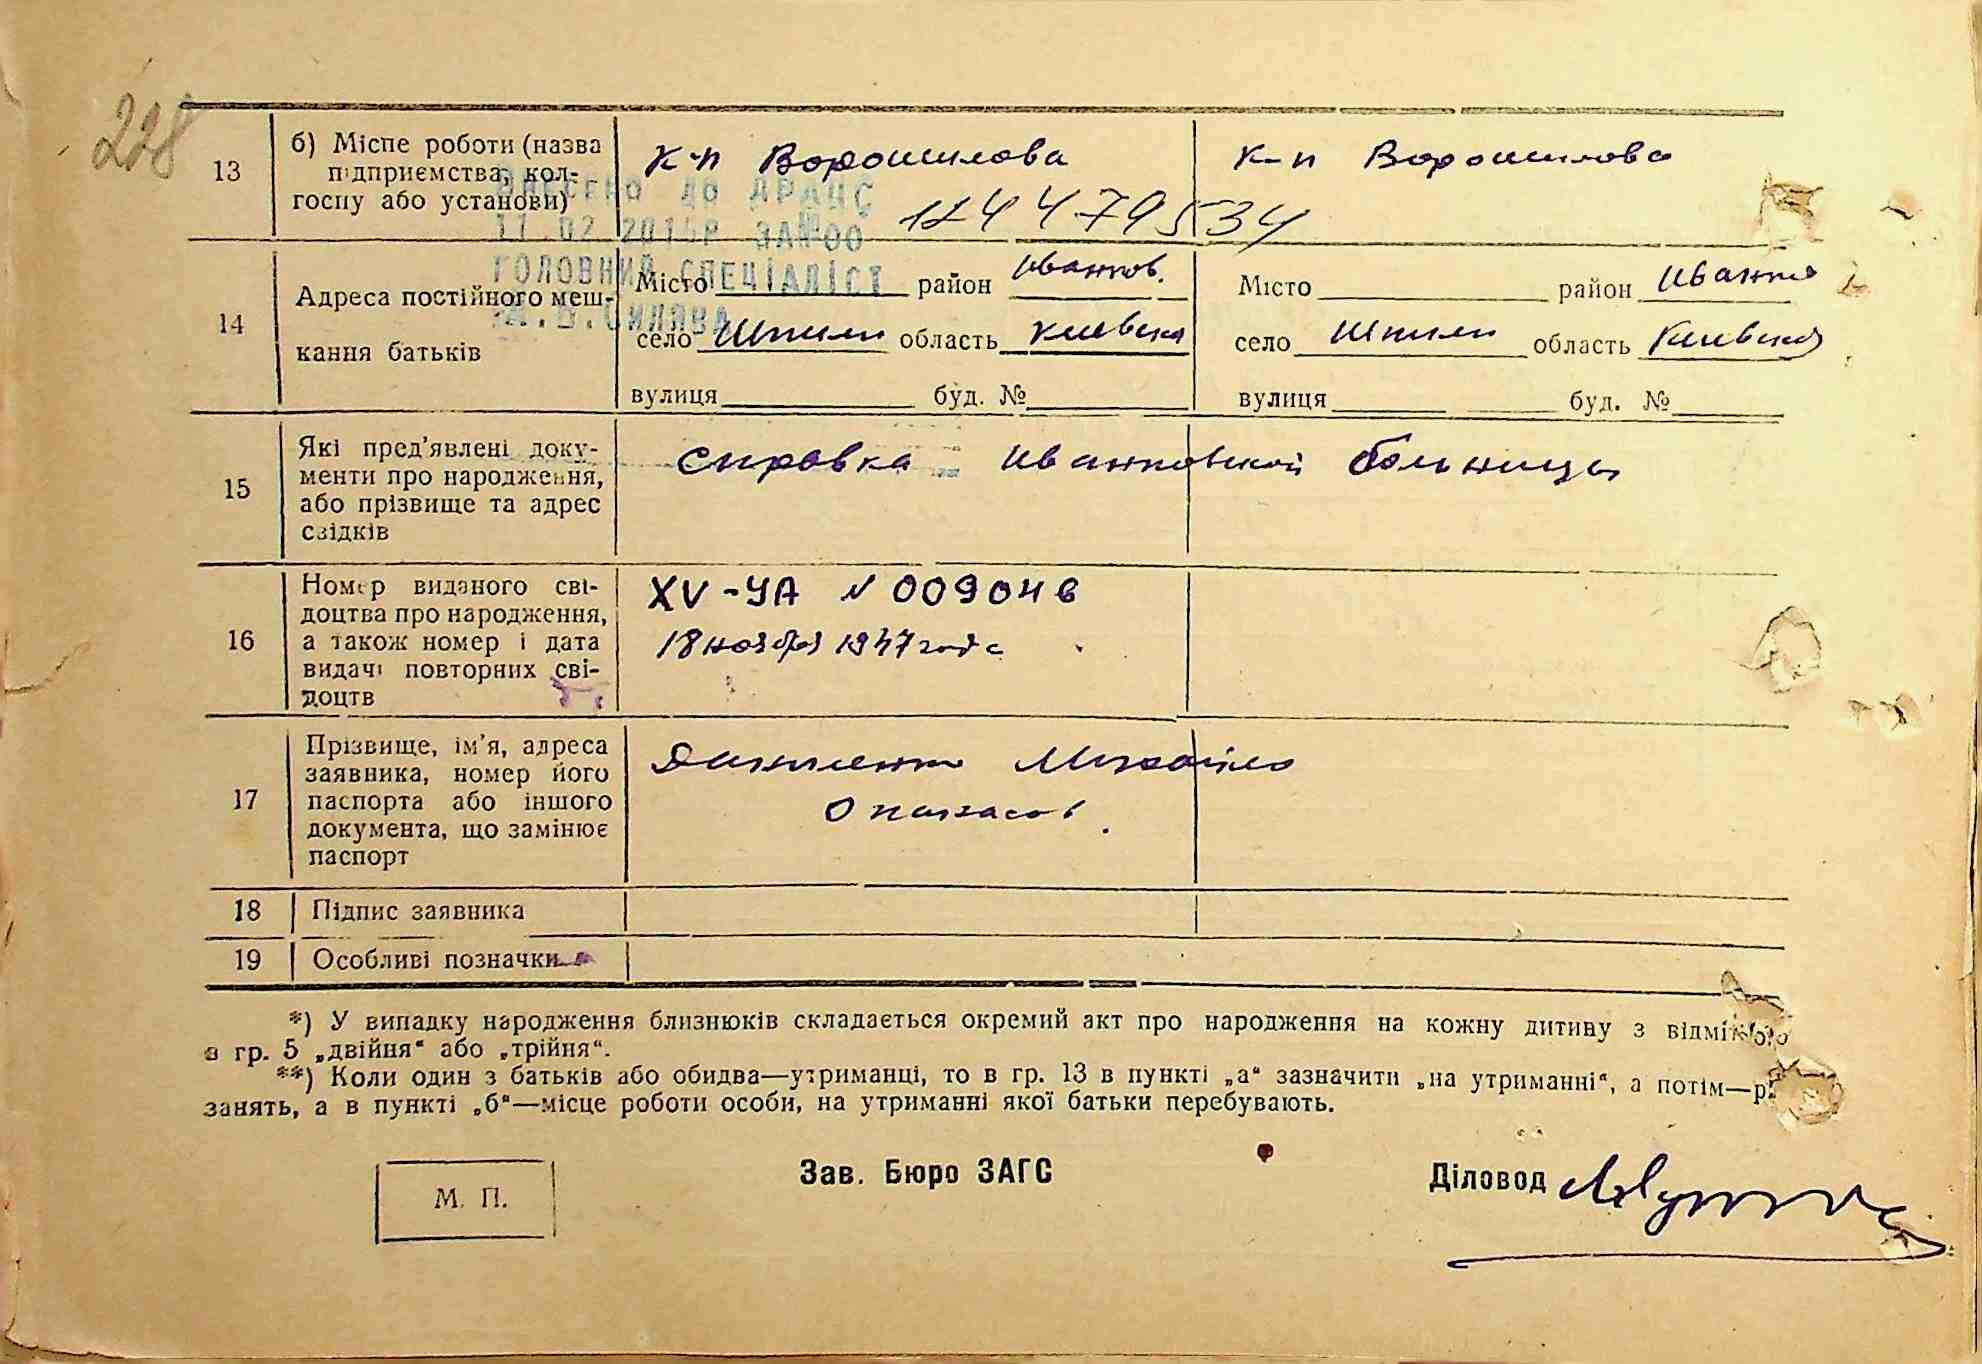 228
13
б) Місце роботи (назва
підприємства, кол-
госпу або установи)
К-п Ворошилова
К-п Ворошилова
ВНЕСЕНО ДО ДРАЦС
ЗА №00
ГОЛОВНИЙ СПЕЦІАЛІСТ
14
Адреса постійного меш-
кання батьків
Місто район Иванков.
село Шпили область Киевска
вулиця буд. №
Місто район Иванко
село Шпили область Киевская
вулиця буд. №
15
Які пред’явлені доку-
менти про народження,
або прізвище та адрес
свідків
справка Иванковской больницы
16
Номер виданого сві-
доцтва про народження,
а також номер і дата
видачі повторних сві-
доцтв
XV-УА N 009046
18 ноября 1947 года
17
Прізвище, ім’я, адреса
заявника, номер його
паспорта або іншого
документа, що замінює
паспорт
18
Підпис заявника
19
Особливі позначки
*) У випадку народження близнюків складається окремий акт про народження на кожну дитину з відміткою
в гр. 5 „двійня“ або „трійня“.
**) Коли один з батьків або обидва—утриманці, то в гр. 13 в пункті „а“ зазначити „на утриманні“, а потім—
занять, а в пункті „б“—місце роботи особи, на утриманні якої батьки перебувають.
М. П.
Зав. Бюро ЗАГС
Діловод